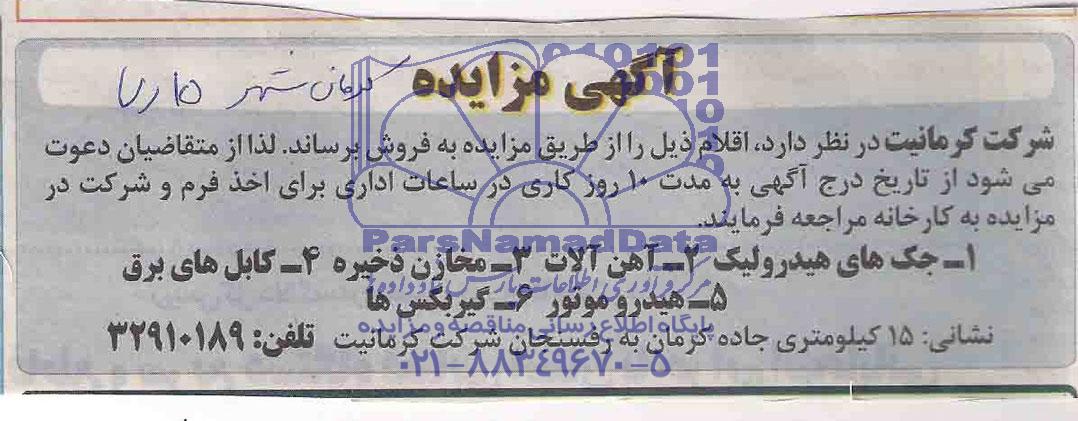 آگهی مزایده
کرمان شهر
شرکت کرمانیت در نظر دارد، اقلام ذیل را از طریق مزایده به فروش برساند. لذا از متقاضیان دعوت
می شود از تاریخ درج آگهی به مدت ۱۰ روز کاری در ساعات اداری برای اخذ فرم و شرکت در
مزایده به کارخانه مراجعه فرمایند.
۱ـ جک های هیدرولیک ۲ـ آهن آلات ۳ـ مخازن ذخیره ۴ـ کابل های برق
۵ـ هیدرو موتور ۶ـ گیربکس ها
نشانی: ۱۵ کیلومتری جاده کرمان به رفسنجان شرکت کرمانیت تلفن: ۳۲۹۱۰۱۸۹
ParsNamadData
پایگاه اطلاع رسانی مناقصه و مزایده
۰۲۱-۸۸۳۴۹۶۷۰-۵